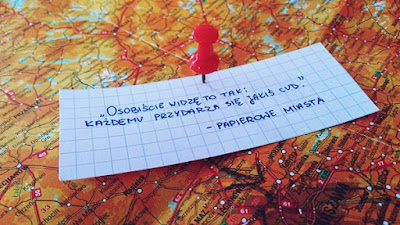 „OSOBIŚCIE WIDZĘ TO TAK:
KAŻDEMU PRZYDARZA SIĘ JAKIŚ CUD."
- PAPIEROWE MIASTA